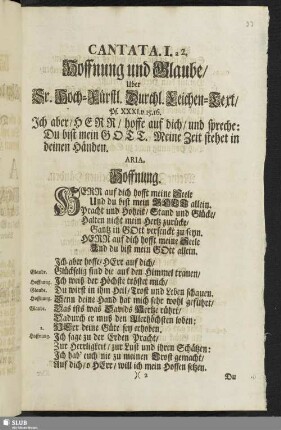 CANTATA. I. à 2.
Hoffnung und Glaube/
Uber
Sr. Hoch-Fürstl. Durchl. Leichen-Text/
Ps. XXXI. v. 15. 16.
Ich aber/ HERR/ hoffe auf dich/ und spreche:
Du bist mein GOTT. Meine Zeit stehet in
deinen Händen.
ARIA.
Hoffnung.
HERR auf dich hofft meine Seele
Und du bist mein GOTT allein.
Pracht und Hoheit/ Stand und Glücke/
Halten nicht mein Hertz zurücke/
Gantz in GOtt versenckt zu seyn.
HERR auf dich hofft meine Seele
Und du bist mein GOtt allein.
Ich aber hoffe/ HErr auf dich/
Glaube. Glückselig sind die auf den Himmel trauen/
Hoffnung. Ich weiß der Höchste tröstet mich/
Glaube. Du wirst in ihm Heil/ Trost und Leben schauen.
Hoffnung. Denn deine Hand hat mich sehr wohl geführet/
Glaube. Das ists was Davids Hertze rühret/
Wodurch er muß den Allerhöchsten loben:
2. HErr deine Güte sey erhoben.
Hoffnung. Ich sage zu der Erden Pracht/
Zur Herrligkeit/ zur Lust und ihren Schätzen:
Ich hab' euch nie zu meinen Trost gemacht/
Auf dich/ o HErr/ will ich mein Hoffen setzen.
)( 2
Du
SLUB